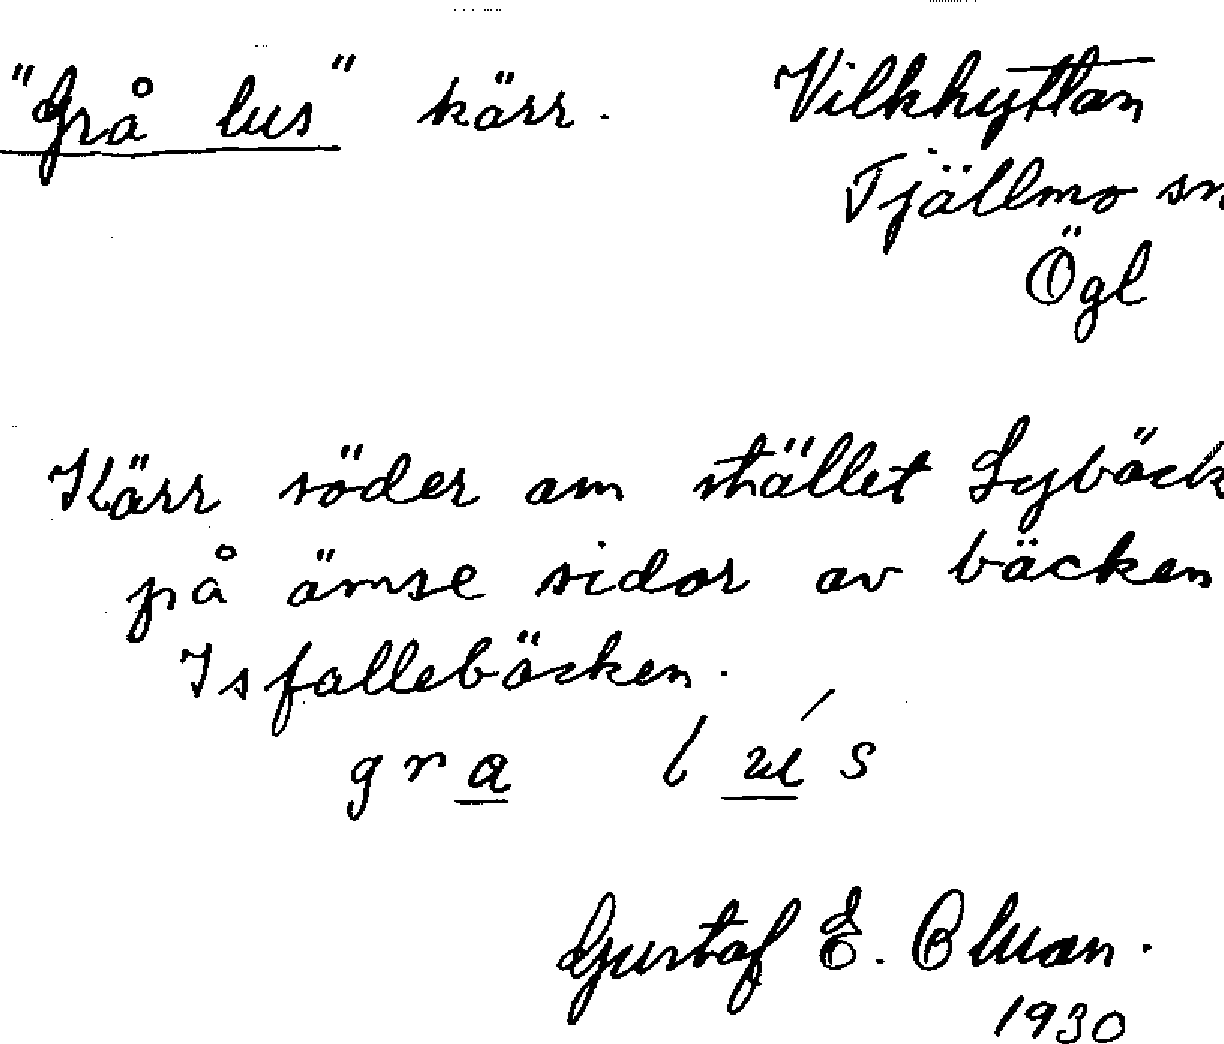 "Grå lus" kärr. Vilkhyttan
Tjällmo sn
Ögl
Kärr söder om stället Lybäck
på ömse sidor av bäcken
Isfallebäcken.
gra lús
Gustaf E.
1930